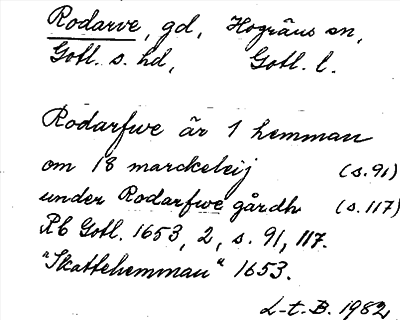 Rodarve, gd, Hogräns sn,
Gotl. s. hd, Gotl. l.
Rodarfwe är 1 hemman
om 18 marckeleij (s. 91)
under Rodarfwe gårdh (s. 117)
Rb Gotl. 1653, 2, s. 91, 117.
"Skattehemman" 1653.
L-t. B. 1982